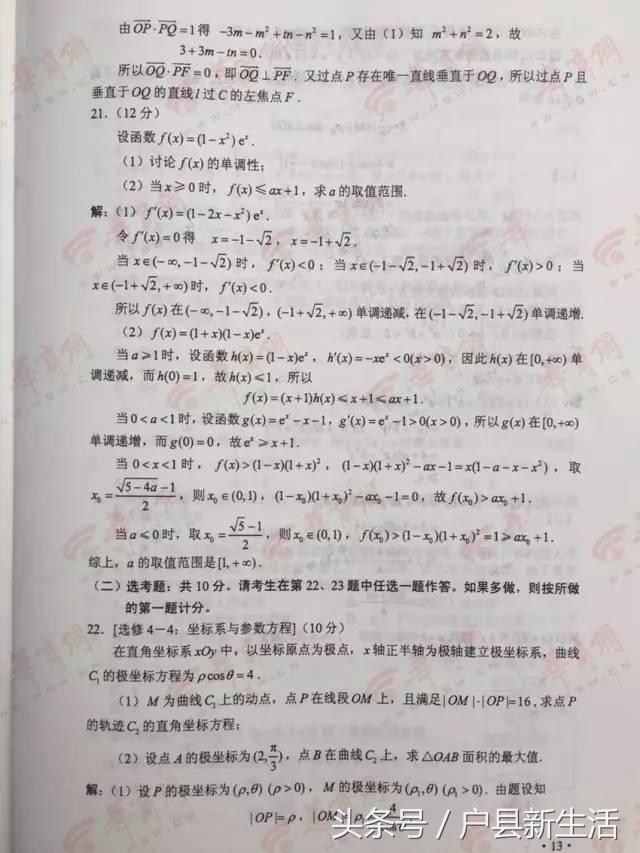 由 $\overrightarrow{OP}\cdot\overrightarrow{PQ}=1$ 得 $-3m-m^2+tn-n^2=1$，又由（1）知 $m^2+n^2=2$，故
$3+3m-tn=0$．
所以 $\overrightarrow{OQ}\cdot\overrightarrow{PF}=0$，即 $\overrightarrow{OQ}\perp\overrightarrow{PF}$．又过点 P 存在唯一直线垂直于 OQ，所以过点 P 且
垂直于 OQ 的直线 l 过 C 的左焦点 F．
21.（12 分）
设函数 $f(x)=(1-x^2)e^x$．
（1）讨论 $f(x)$ 的单调性；
（2）当 $x\geqslant 0$ 时，$f(x)\leqslant ax+1$，求 a 的取值范围.
解:（1）$f'(x)=(1-2x-x^2)e^x$．
令 $f'(x)=0$ 得 $x=-1-\sqrt{2}$，$x=-1+\sqrt{2}$．
当 $x\in(-\infty,-1-\sqrt{2})$ 时，$f'(x)<0$；当 $x\in(-1-\sqrt{2},-1+\sqrt{2})$ 时，$f'(x)>0$；当
$x\in(-1+\sqrt{2},+\infty)$ 时，$f'(x)<0$．
所以 $f(x)$ 在 $(-\infty,-1-\sqrt{2})$，$(-1+\sqrt{2},+\infty)$ 单调递减，在 $(-1-\sqrt{2},-1+\sqrt{2})$ 单调递增.
（2）$f(x)=(1+x)(1-x)e^x$．
当 $a\geqslant 1$ 时，设函数 $h(x)=(1-x)e^x$，$h'(x)=-xe^x<0(x>0)$，因此 $h(x)$ 在 $[0,+\infty)$ 单
调递减，而 $h(0)=1$，故 $h(x)\leqslant 1$，所以
$f(x)=(x+1)h(x)\leqslant x+1\leqslant ax+1$．
当 $0<a<1$ 时，设函数 $g(x)=e^x-x-1$，$g'(x)=e^x-1>0(x>0)$，所以 $g(x)$ 在 $[0,+\infty)$
单调递增，而 $g(0)=0$，故 $e^x\geqslant x+1$．
当 $0<x<1$ 时，$f(x)>(1-x)(1+x)^2$，$(1-x)(1+x)^2-ax-1=x(1-a-x-x^2)$，取
$x_0=\frac{\sqrt{5-4a}-1}{2}$，则 $x_0\in(0,1)$，$(1-x_0)(1+x_0)^2-ax_0-1=0$，故 $f(x_0)>ax_0+1$．
当 $a\leqslant 0$ 时，取 $x_0=\frac{\sqrt{5}-1}{2}$，则 $x_0\in(0,1)$，$f(x_0)>(1-x_0)(1+x_0)^2=1\geqslant ax_0+1$．
综上，a 的取值范围是 $[1,+\infty)$．
（二）选考题：共 10 分。请考生在第 22、23 题中任选一题作答。如果多做，则按所做
的第一题计分。
22. [选修 4－4：坐标系与参数方程]（10 分）
在直角坐标系 xOy 中，以坐标原点为极点，x 轴正半轴为极轴建立极坐标系，曲线
$C_1$ 的极坐标方程为 $\rho\cos\theta=4$．
（1）M 为曲线 $C_1$ 上的动点，点 P 在线段 OM 上，且满足 $|OM|\cdot|OP|=16$，求点 P
的轨迹 $C_2$ 的直角坐标方程；
（2）设点 A 的极坐标为 $(2,\frac{\pi}{3})$，点 B 在曲线 $C_2$ 上，求 $\triangle OAB$ 面积的最大值.
解:（1）设 P 的极坐标为 $(\rho,\theta)$ $(\rho>0)$，M 的极坐标为 $(\rho_1,\theta)$ $(\rho_1>0)$．由题设知
$|OP|=\rho$，$|OM$
头条号 / 户县新生活
• 13 •